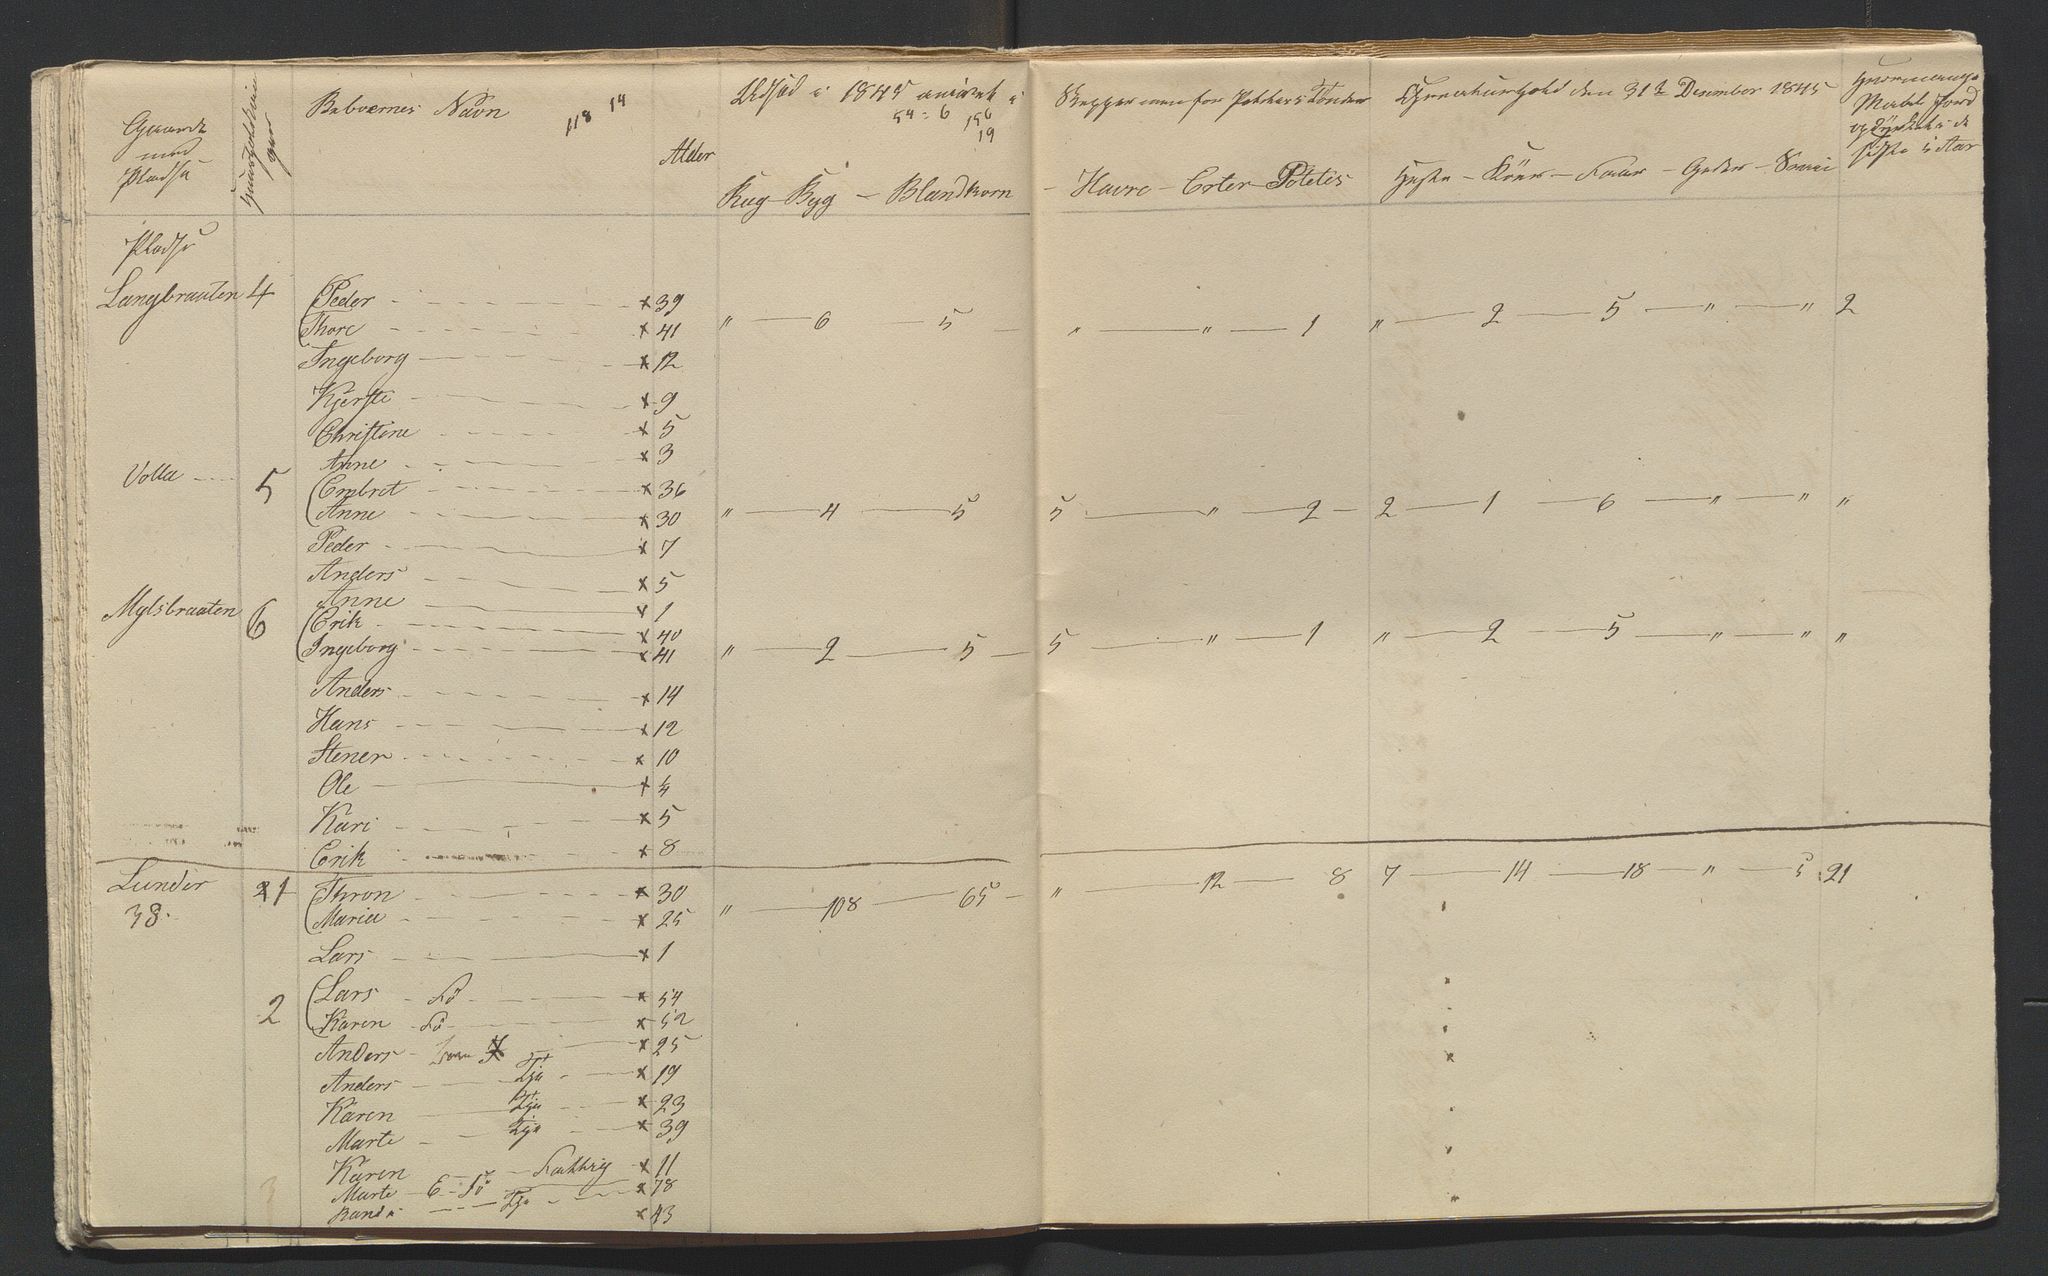 Gaarde med Pladse
Beboernes Navn 118 14
Alder
Udsæd i 1845 anført i
54 : 6 156
19
Rug - Byg - Blandkorn
Skepper men for Potetes Tønder
- Havre - Erter - Potetes
Creaturhold den 31te Desember 1845
Heste - Köer - Faar - Geder - Sviin
Pladse
Langbraaten 4 Peder x 39
Thore x 41 " 6 5 " " 1 " 2 5 " " 2
Ingeborg x 12
Kjersti x 9
Christine x 5
Anne x 3
Volla 5 Embret x 36
Anne x 30 " 4 5 5 " 2 2 1 6 " " "
Peder x 7
Anders x 5
Anne x 1
Mylsbraaten 6 Erik x 40
Ingeborg x 41 " 2 5 5 " 1 " 2 5 " " "
Anders x 14
Hans x 12
Stener x 10
Ole x 4
Kari x 5
Erik x 8
Lunder 1 Thron x 30
38. Maria x 25 " 108 65 " 12 8 7 14 18 " 5 21
Lars x 1
2 Lars Fö x 54
Karen Fö x 52
Anders x 25
Anders Tje x 19
Karen Tje x 23
Marte Tje x 39
Karen Fattig x 11
Marte E - Fö x 78
Randi Tje x 43